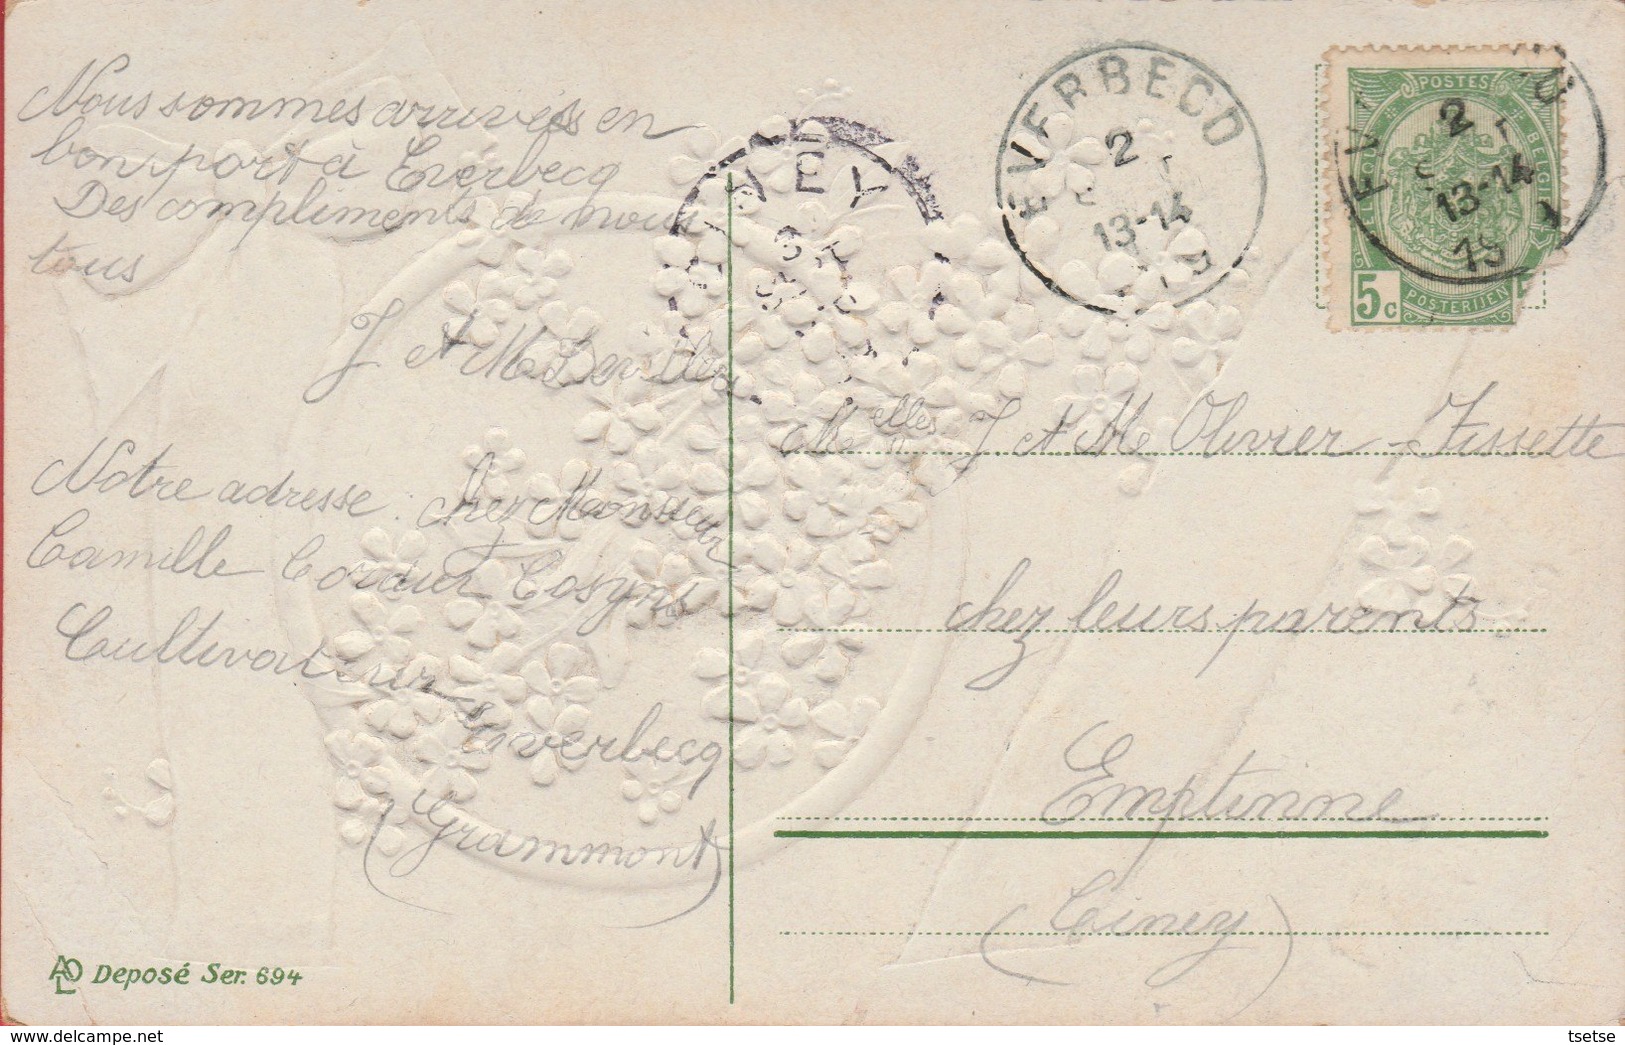 Nous sommes arrivés en
bon port à Everbecq
Des compliments de nous
tous
J. et M Deville
Notre adresse : chez Monsieur
Camille Cordur Cosyns
Cultivateur
Everbecq
(Grammont)
ALO Deposé Ser. 694
EVERBECQ
2
13-14
CINEY
2
13-14
POSTES
BELGIË
5c
POSTERIJEN
Melles J et M Olivier-Fissette
chez leurs parents
Emptinne
(Ciney)
tsetse